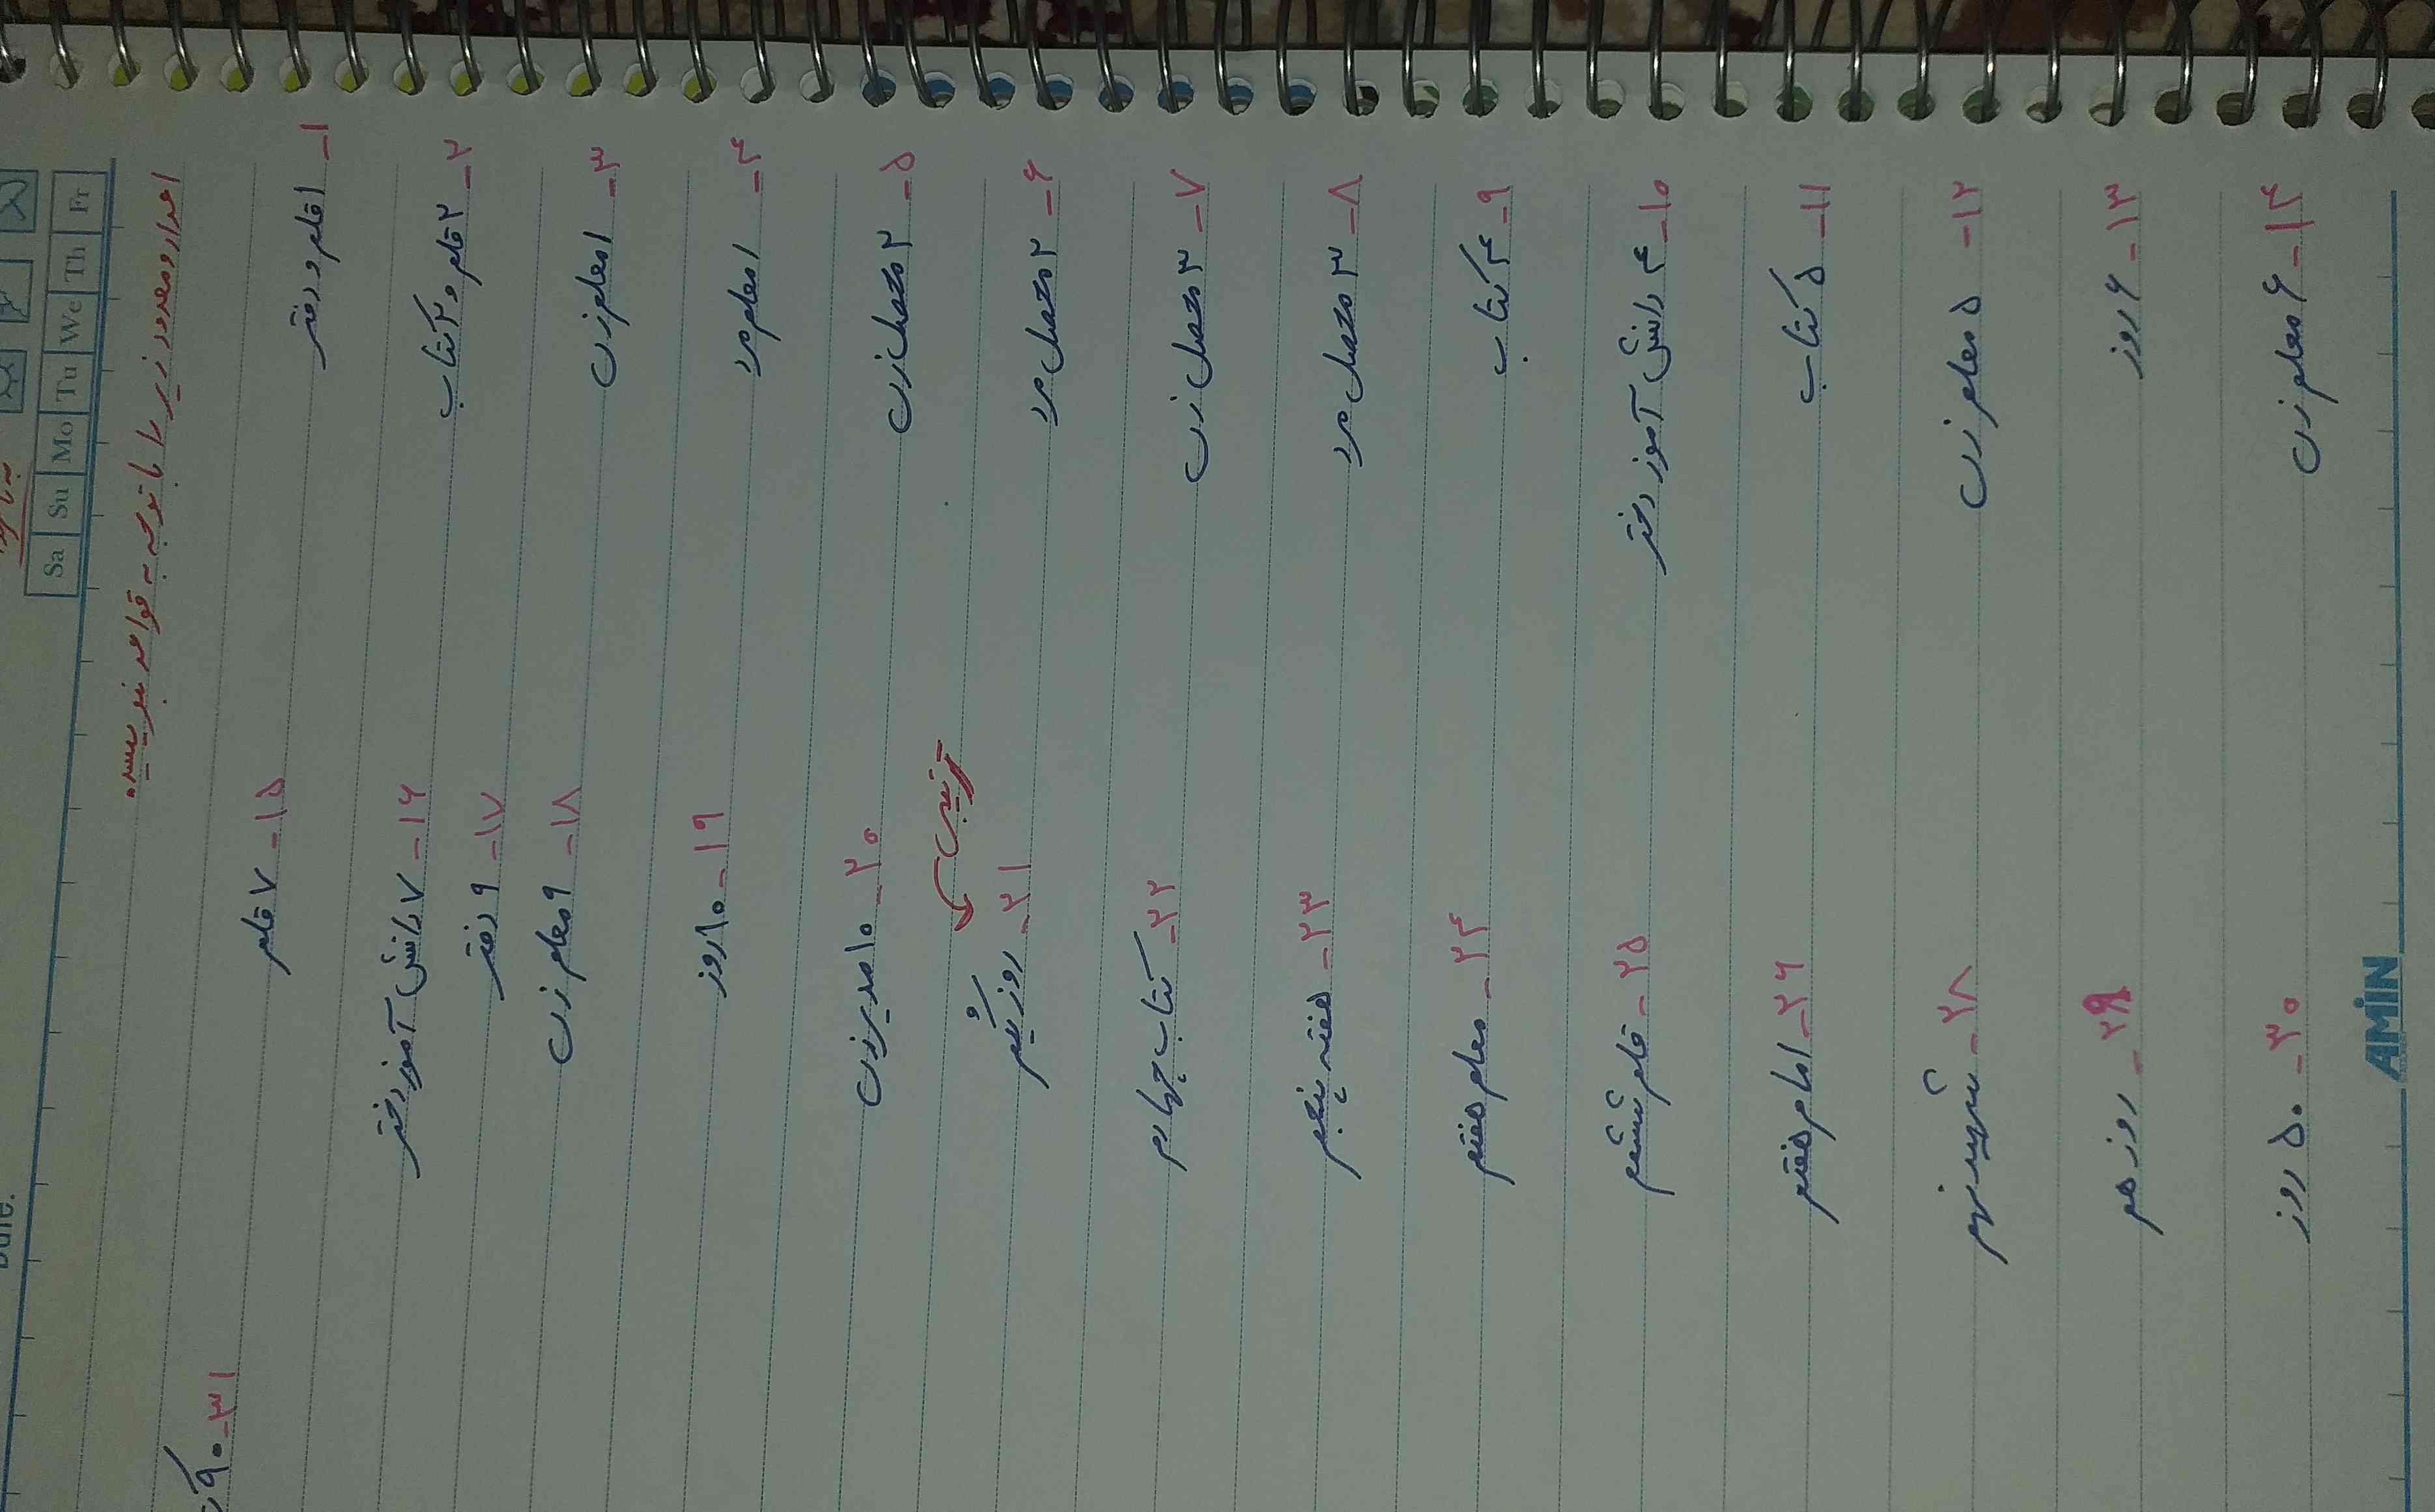 Sa Su Mo Tu We Th Fr
اعداد و معدود زیر را با توجه به قواعد بنویسید.
۱- ۱ قلم و دفتر
۲- ۲ قلم و ۲ کتاب
۳- ۱ معلم زن
۴- ۱ معلم مرد
۵- ۲ محصل زن
۶- ۲ محصل مرد
۷- ۳ محصل زن
۸- ۳ محصل مرد
۹- ۴ کتاب
۱۰- ۴ دانش آموز دختر
۱۱- ۵ کتاب
۱۲- ۵ معلم زن
۱۳- ۶ روز
۱۴- ۶ معلم زن
۱۵- ۷ قلم
۱۶- ۷ دانش آموز دختر
۱۷- ۹ دفتر
۱۸- ۹ معلم زن
۱۹- ۱۰ روز
۲۰- ۱۰ مدیر زن
ترتیبی
۲۱- روز یکُم
۲۲- کتاب چهارم
۲۳- هفته پنجم
۲۴- معلم هفتم
۲۵- قلم ششم
۲۶- امام هفتم
۲۸- شهید نهم
۲۹- روز هم
۳۰- ۵۰ روز
۳۱- ۹۰
AMIN